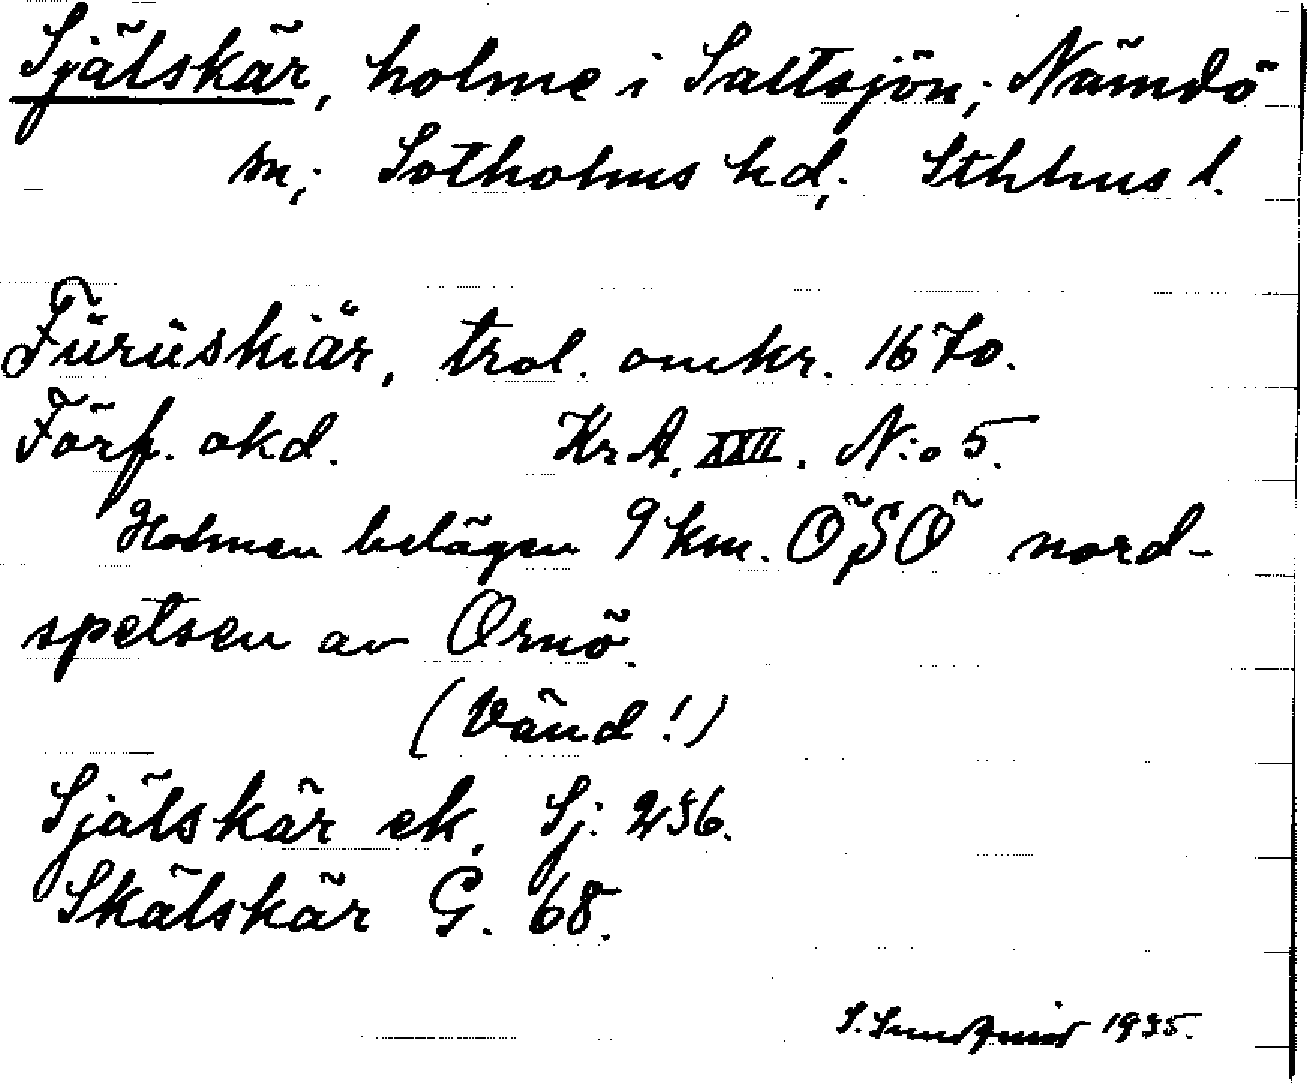 Själskär, holme i Saltsjön; Nämdö
sn; Sotholms hd; Sthlms l.
Furuskiär, trol. omkr. 1670.
Förf. okd. Kr.A. XXII. N:o 5.
Holmen belägen 9 km. ÖSÖ nord-
spetsen av Ornö.
(Vänd!)
Själskär ek. Sj. 236.
Skälskär G. 68.
S. Sundqvist 1935.